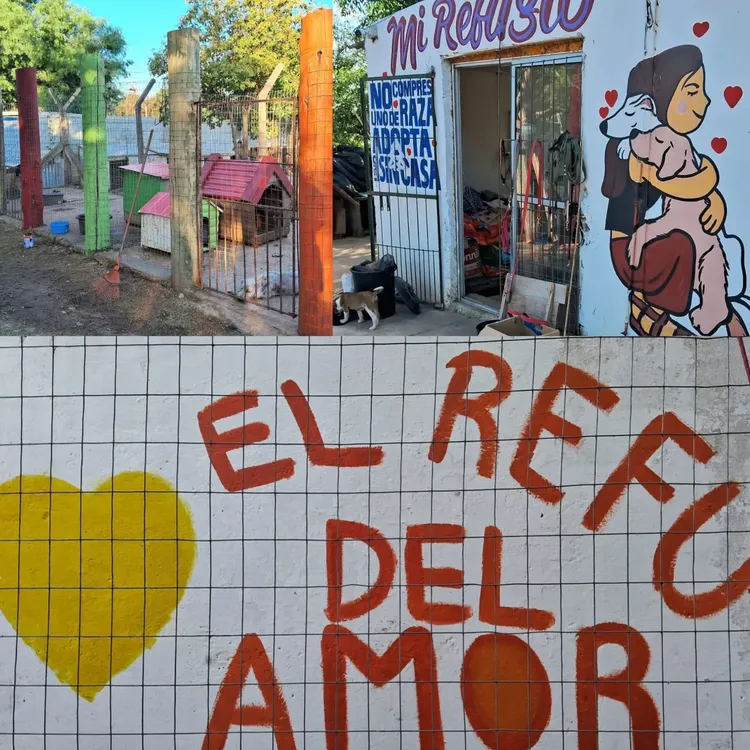 Mi Refugio
NO COMPRES
UNO DE RAZA
ADOPTA
UNO SIN CASA
EL REFU
DEL
AMOR